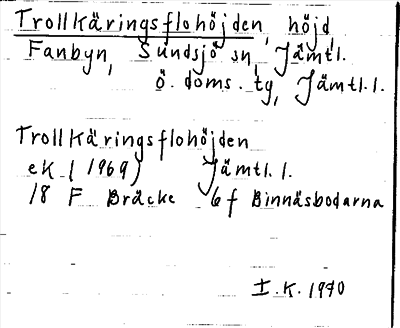 Trollkäringsflohöjden, höjd,
Fanbyn, Sundsjö sn, Jämtl.
ö. doms. tg, Jämtl.l.
Trollkäringsflohöjden
ek (1969) Jämtl.l.
18 F Bräcke 6f Binnäsbodarna
I.K. 1970